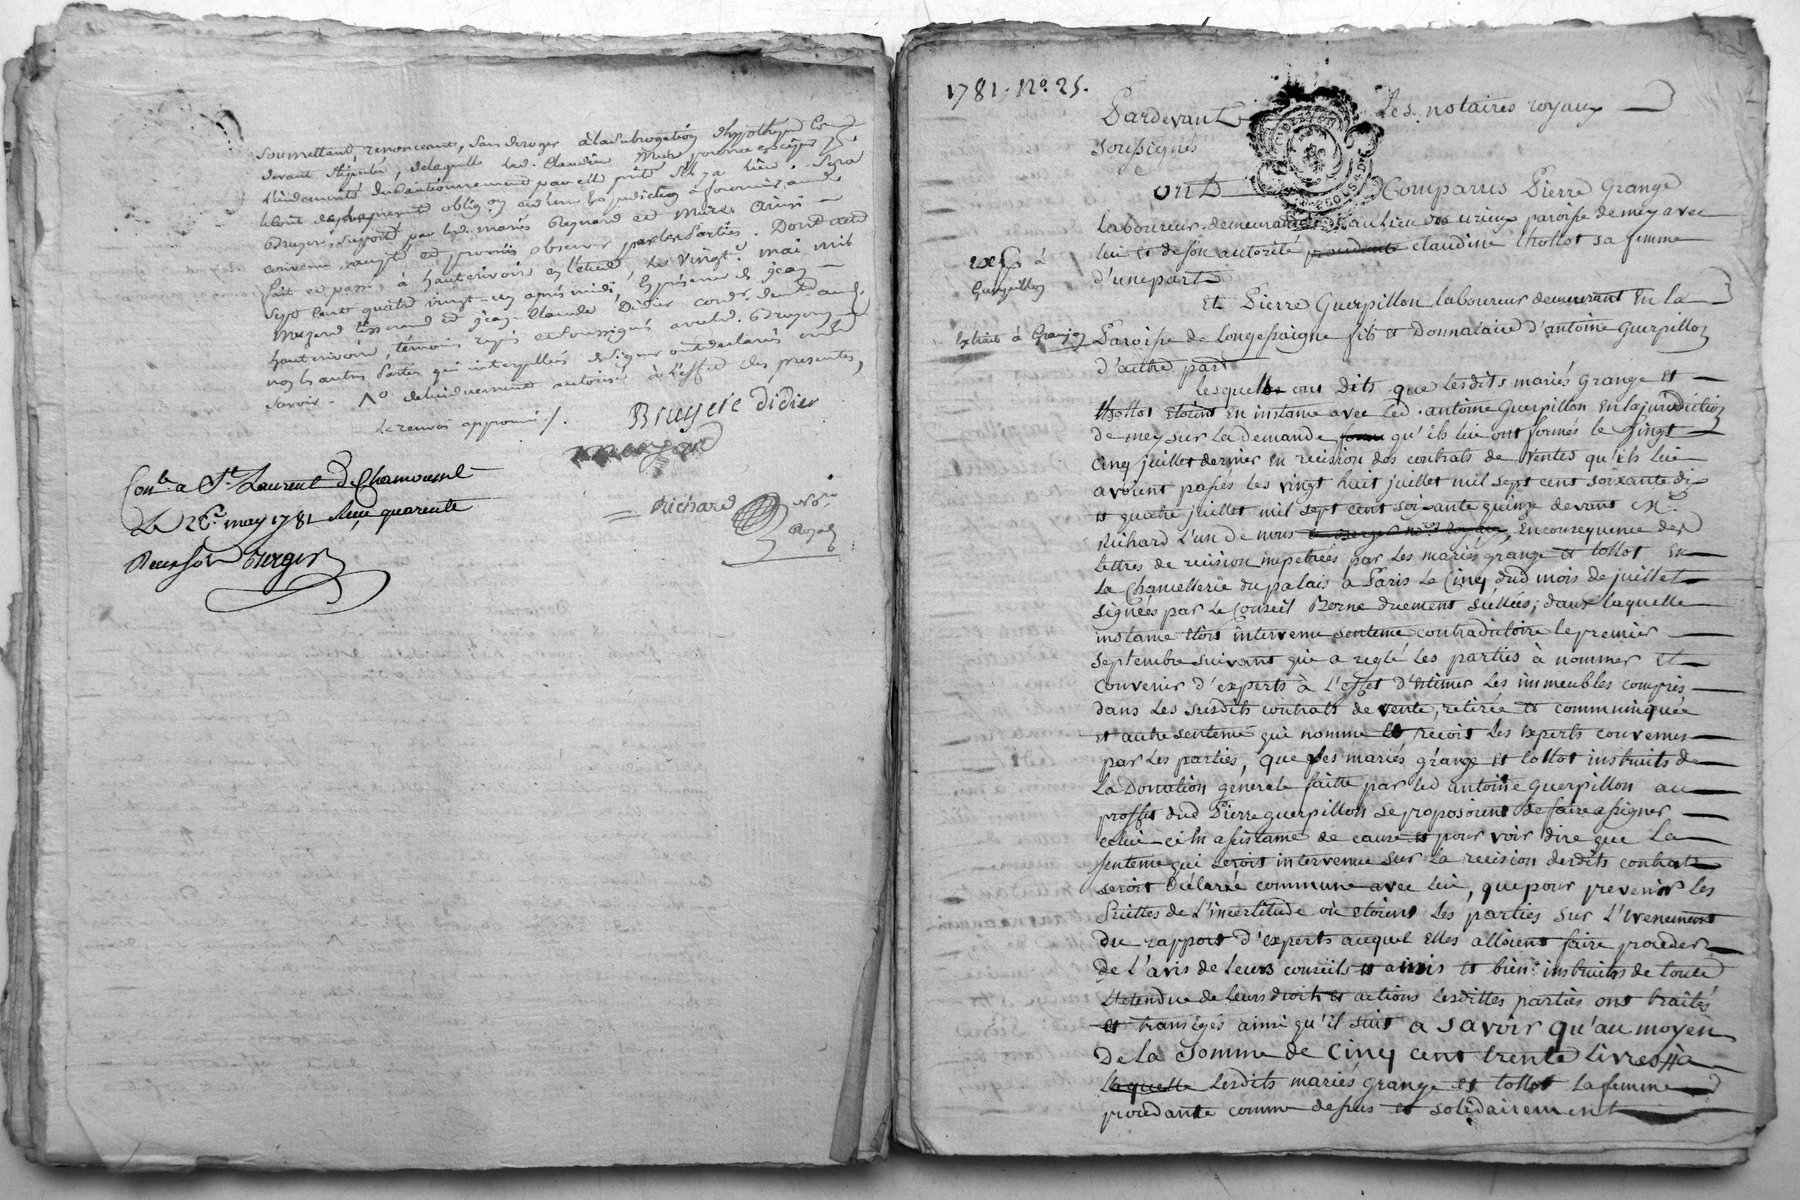 soumettant, renonceant, sans deroger à la subrogation d'hypotheque cy
devant stipulée, de laquelle lad. Claudine Mure pourra exciper
obligé
Bruyere, report par lesd. mariés Reynard et Mure. Ainsi
convenu, accepté et promis observer par les Parties. Dont acte
fait et passé à hauterivoire en l'etude, le vingt mai mil
sept cent quatre vingt-un après midi, en présence de jean
tisserand et jean-Claude Didier cord. dem.t aud.
hauterivoire, témoins requis et soussignés avec led. Bruyere
non les autres Parties qui interpellées de signer ont declarés ne le
savoir. duement autorisé à l'effet des presentes,
le renvoi approuvé
Bruyere didier
Richard No.re
Royal
Con.lé a S.t Laurent de Chamousset
Le 26 may 1781 Reçu quarente
1781. N.o 25.
Pardevant Les notaires royaux
soussignés
ont Comparus Pierre Grange
laboureur demeurant au lieu des urieux paroisse de mey avec
lui et de son autorité procedante claudine thollot sa femme
d'une part
Exp.on à
Guerpillon
Et Pierre Guerpillon laboureur demeurant en la
Extrait à Grange
Paroisse de Longessaigne fils et Donnataire d'antoine Guerpillon
d'autre part
Lesquelles ont dits que lesdits mariés grange et
thollot etoient En instance avec led. antoine Guerpillon en la juridiction
de mey sur la demande qu'ils lui ont formés le vingt
cinq juillet dernier en recision des contrats de ventes qu'ils lui
avoient passés les vingt huit juillet mil sept cent soixante dix
et quatre juillet mil sept cent soixante quinze devant M.e
Richard l'un de nous En consequence des
lettres de recision impetrées par les mariés grange et tollot En
La Chancellerie du palais a Paris Le Cinq dud mois de juillet
signées par le Conseil Borne duement scellées; dans laquelle
instance etoit intervenue sentence contradictoire le premier
septembre suivant qui a reglé les parties à nommer et
convenir d'experts à l'effet d'Estimer les immeubles compris
dans les susdits contrats de vente, retirée et communiquée
et autre sentence qui nomme et recoit les experts convenus
par les parties, que les mariés grange et tollot instruits de
La Donation generale faitte par led antoine Guerpillon au
proffit dud Pierre guerpillon se proposoient de faire assigner
celui-ci En assistance de cause et pour voir dire que la
sentence qui seroit intervenue sur la recision desdits contrats
seroit declarée commune avec lui, que pour prevenir les
suittes de l'incertitude où etoient les parties sur l'evenement
du rapport d'experts auquel elles alloient faire proceder
de l'avis de leurs conseils et amis et bien instruites de toute
l'etendue de leurs droits et actions lesdittes parties ont traités
et transigés ainsi qu'il suit a savoir qu'au moyen
de la somme de cinq cent trente livres à
laquelle lesdits mariés grange et tollot la femme
procedante comme dessus et solidairement